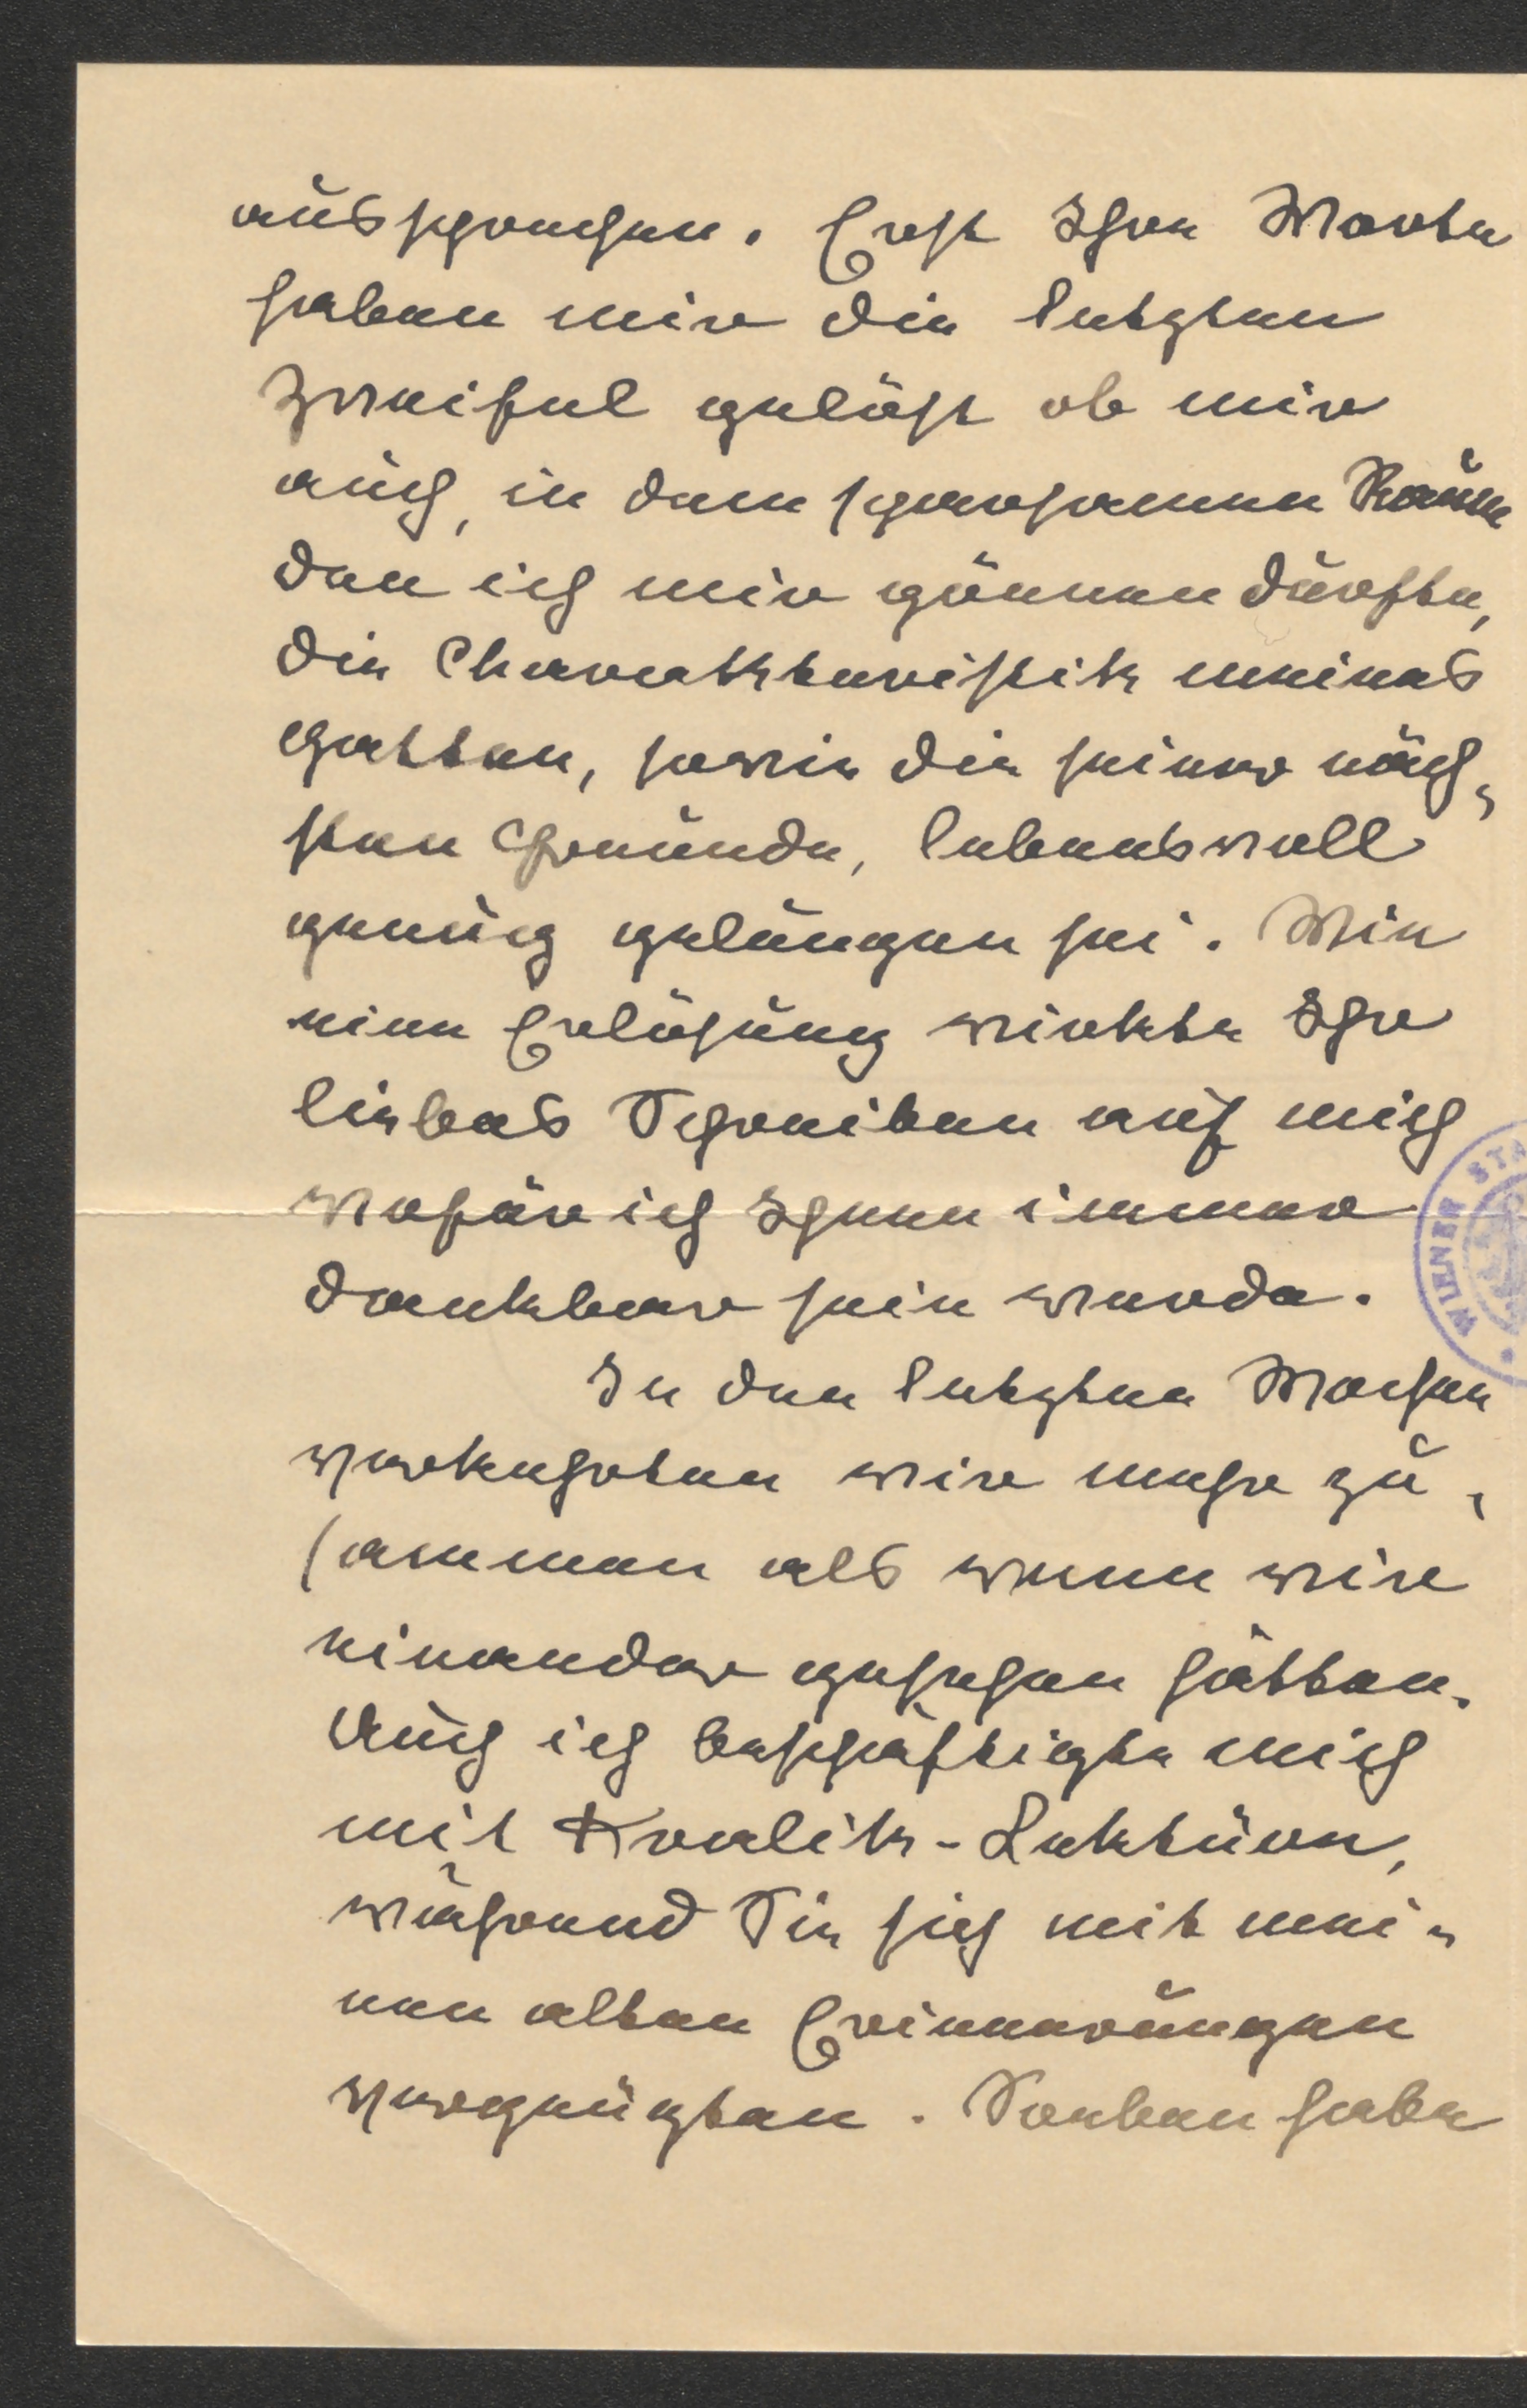 aussprechen. Erst Ihre Worte
haben mir die letzten
Zweifel gelöst ob mir
auch, in dem sparsamen Raum
den ich mir gönnen durfte,
die Charakteristik meines
Gatten, sowie die seiner näch-
sten Freunde, lebensvoll
genug gelungen sei. Wie
eine Erlösung wirkte Ihr
liebes Schreiben auf mich
wofür ich Ihnen immer
dankbar sein werde.
In den letzten Wochen
verkehrten wir mehr zu-
sammen als wenn wir
einander gesehen hätten.
Auch ich beschäftigte mich
mit Kralik-Lektüre,
während Sie sich mit mei-
nen alten Erinnerungen
vergnügten. Soeben habe
WIENER STA